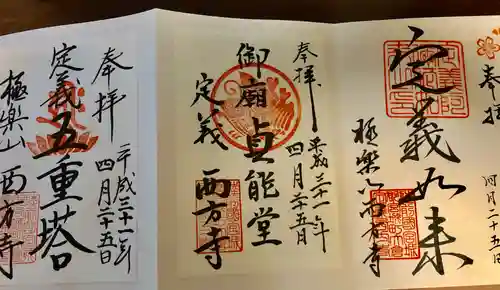 奉拝
四月二十五日
定義如来
極楽山西方寺
奉拝
平成三十一年
四月二十五日
御廟貞能堂
定義
西方寺
奉拝
平成三十一年
四月二十五日
定義
五重塔
極楽山
西方寺